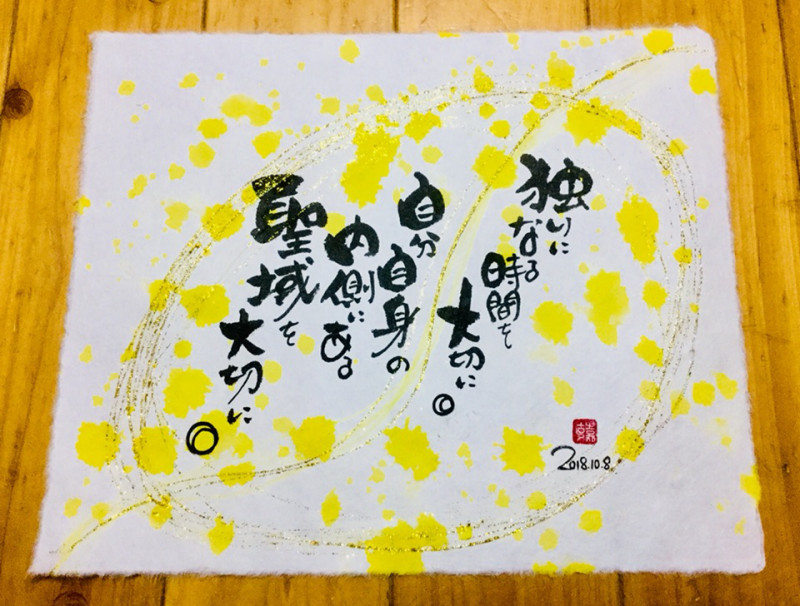 独りに
なる
時間を
大切に。
自分
自身の
内側にある
聖域を
大切に。
2018.10.8.